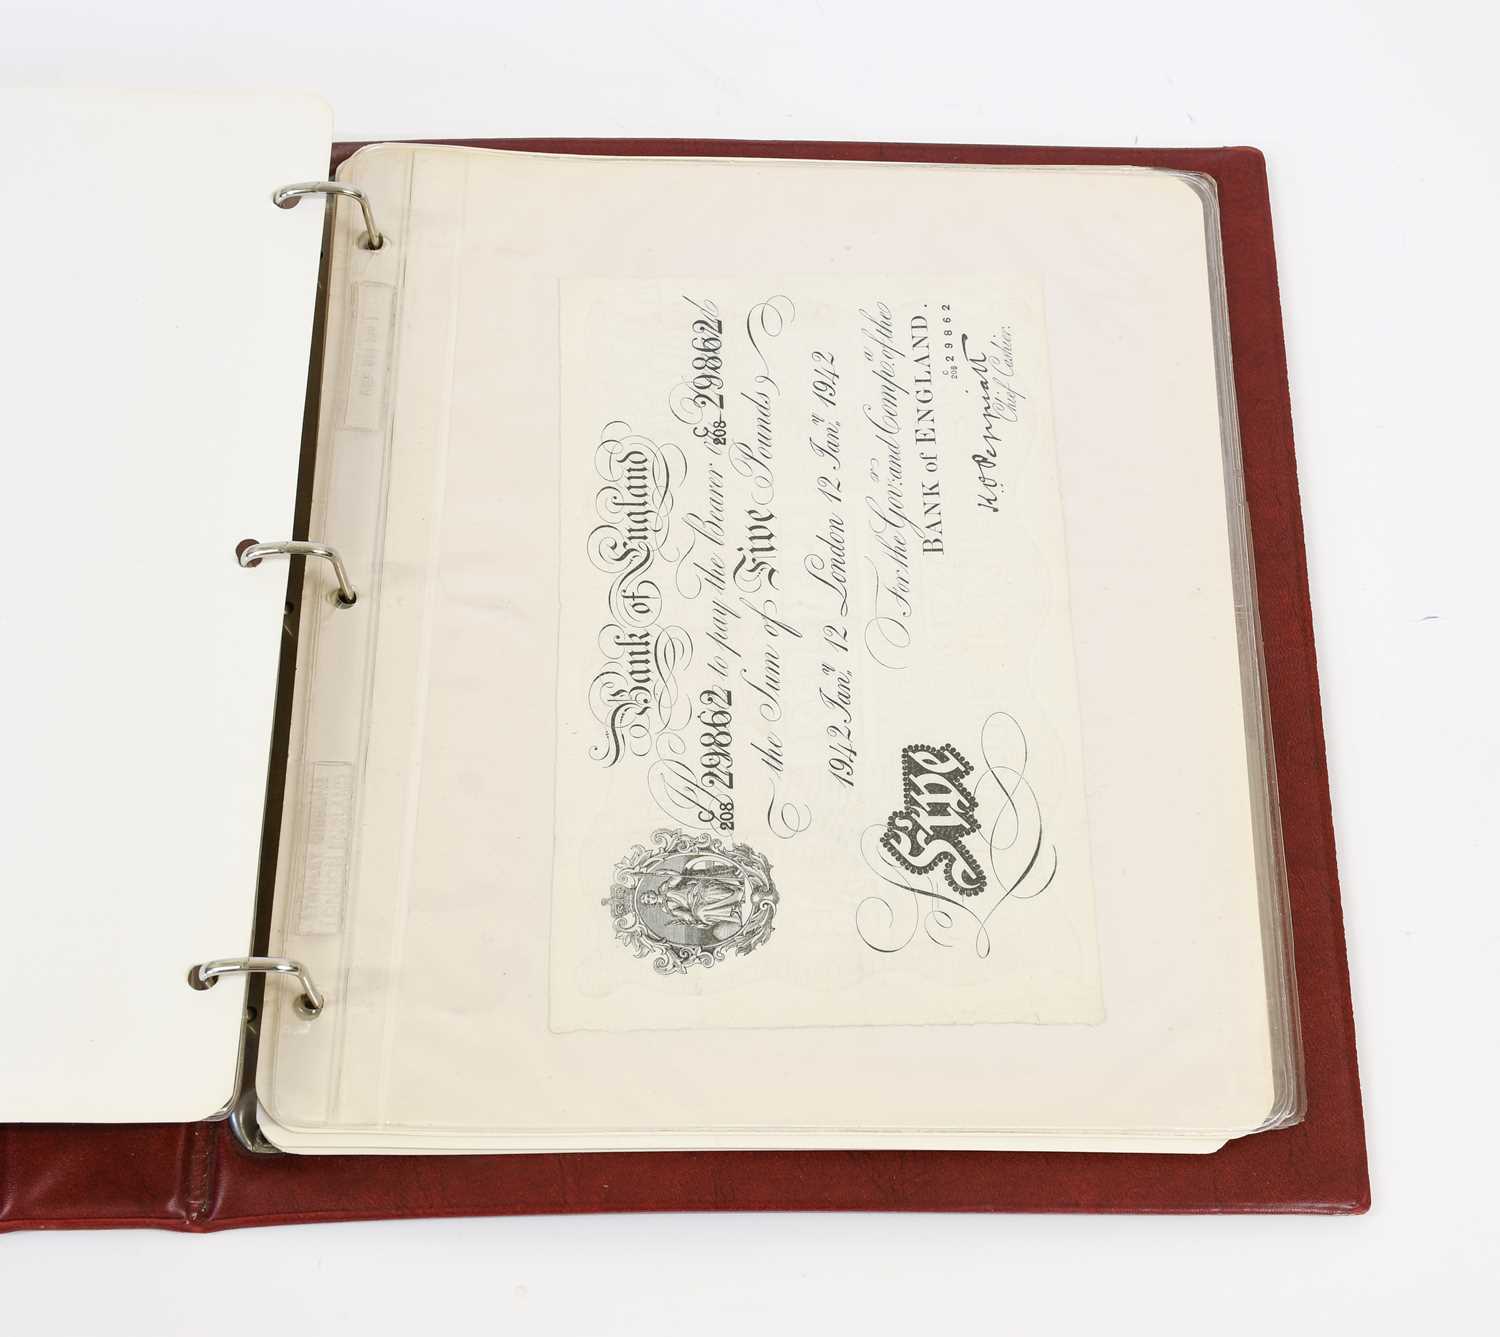 Bank of England
C 208 29862 to pay the Bearer C 208 29862
the Sum of Five Pounds
1942 Jan.y 12 London 12 Jan.y 1942
For the Gov.r and Comp.a of the
BANK of ENGLAND.
Five
C 208 29862
K.O. Peppiatt
Chief Cashier.